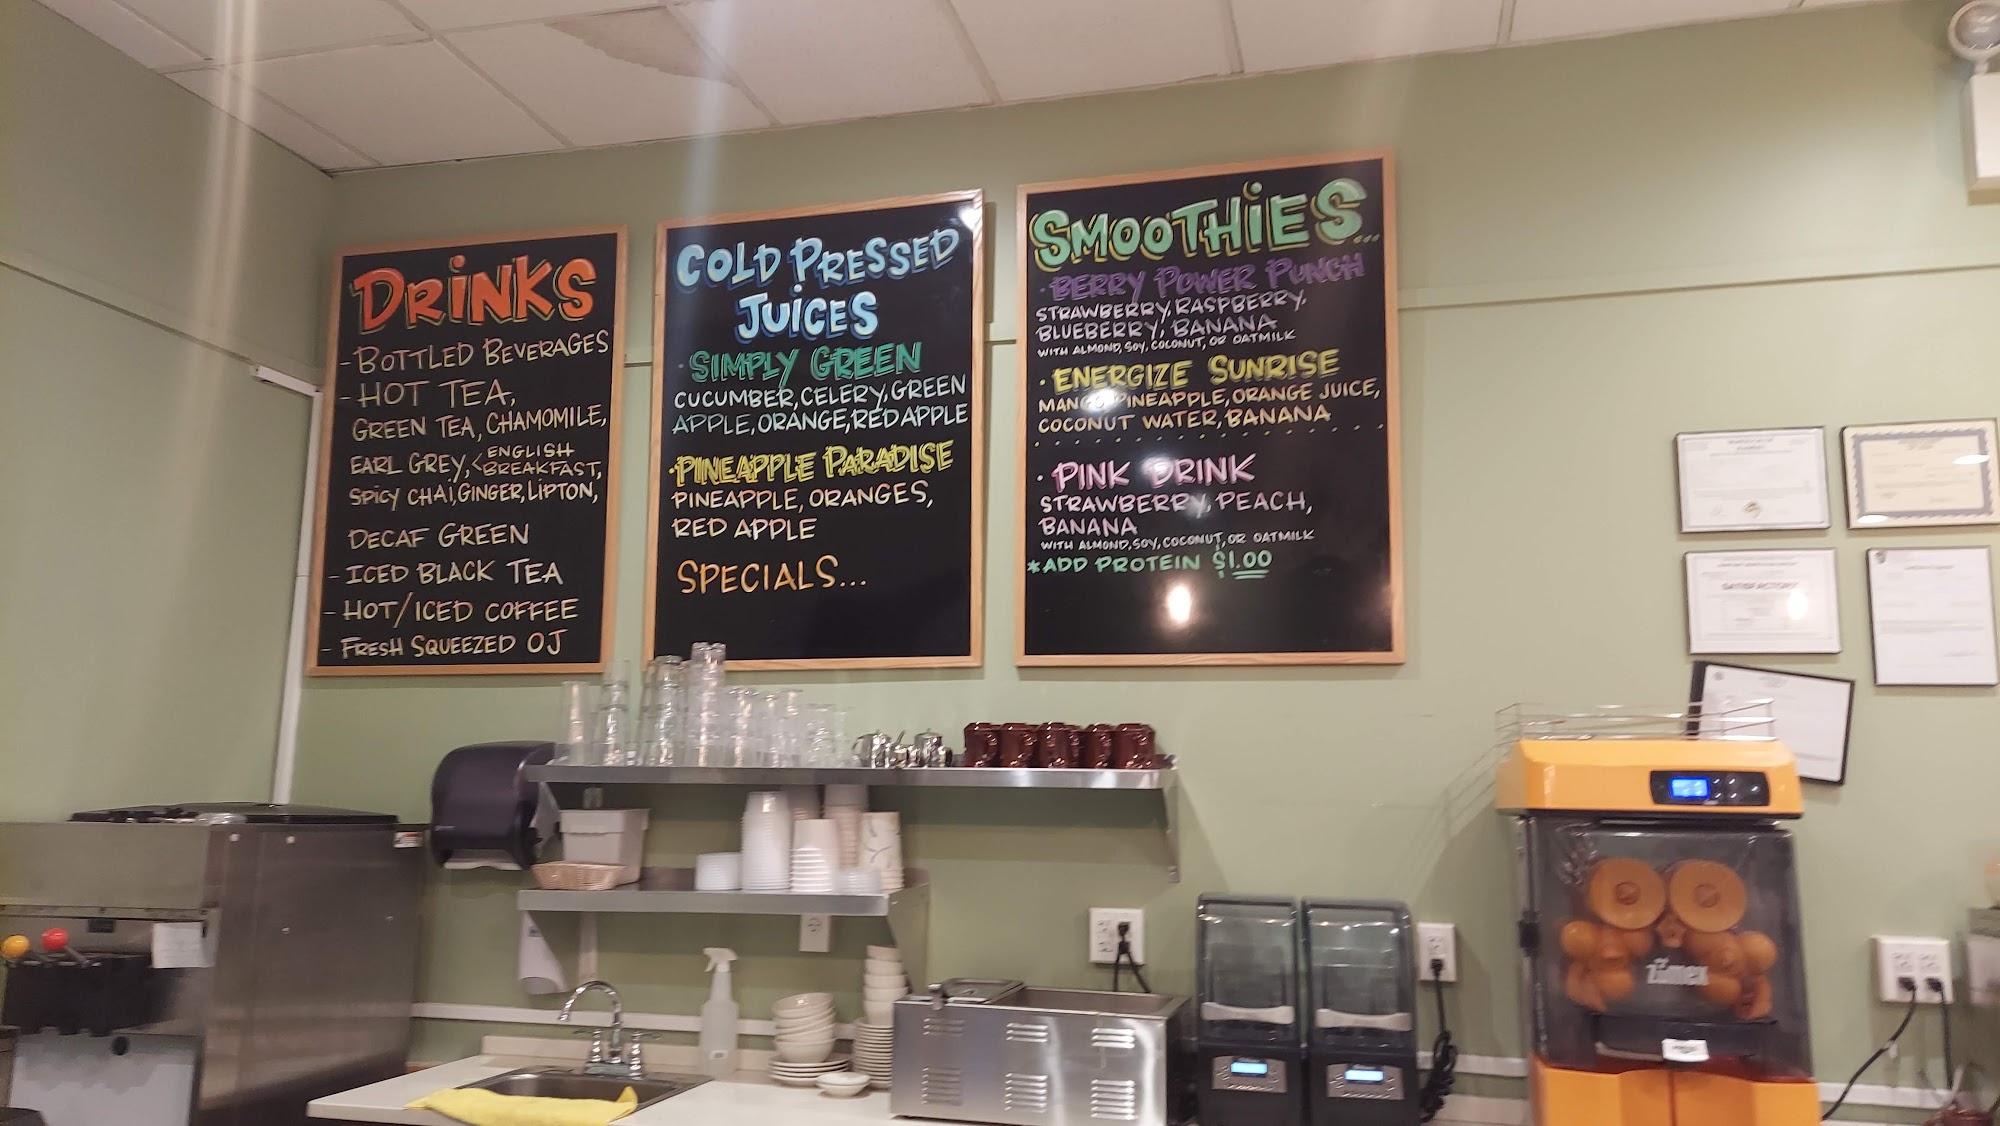 DRINKS
- BOTTLED BEVERAGES
- HOT TEA,
GREEN TEA, CHAMOMILE,
EARL GREY, <ENGLISH
BREAKFAST,
SPICY CHAI, GINGER, LIPTON,
DECAF GREEN
- ICED BLACK TEA
- HOT/ICED COFFEE
- FRESH SQUEEZED OJ
COLD PRESSED
JUICES
· SIMPLY GREEN
CUCUMBER, CELERY, GREEN
APPLE, ORANGE, RED APPLE
· PINEAPPLE PARADISE
PINEAPPLE, ORANGES,
RED APPLE
SPECIALS...
SMOOTHIES...
· BERRY POWER PUNCH
STRAWBERRY, RASPBERRY,
BLUEBERRY, BANANA
WITH ALMOND, SOY, COCONUT, OR OATMILK
· ENERGIZE SUNRISE
MANGO, PINEAPPLE, ORANGE JUICE,
COCONUT WATER, BANANA
· PINK DRINK
STRAWBERRY, PEACH,
BANANA
WITH ALMOND, SOY, COCONUT, OR OATMILK
*ADD PROTEIN $1.00
SATISFACTORY
zümex